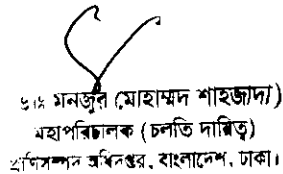 ডাঃ মনজুর মোহাম্মদ শাহজাদা)
মহাপরিচালক (চলতি দায়িত্ব)
প্রাণিসম্পদ অধিদপ্তর, বাংলাদেশ, ঢাকা।